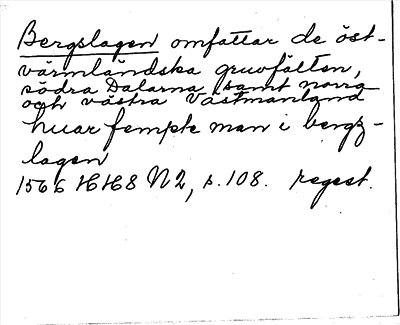 Bergslagen omfattar de öst-
värmländska gruvfälten,
södra Dalarna samt norra
och västra Västmanland
huar fempte man i bergz-
lagen
1566 HH8 N2, s. 108. regest.